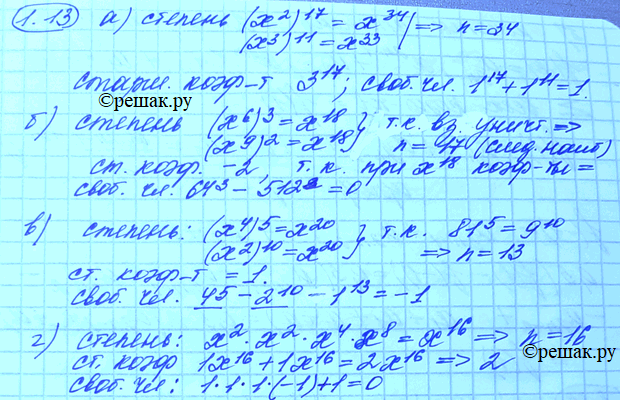 1.13 а) степень (x²)¹⁷ = x³⁴ | => n = 34
(x³)¹¹ = x³³
старш. коэф-т 3¹⁷; своб. чл. 1¹⁷ + 1¹¹ = 1.
©решак.ру
б) степень (x⁶)³ = x¹⁸ } т.к. вз. уничт. =>
(x⁹)² = x¹⁸ n = 17 (след. наиб)
ст. коэф. -2, т.к. при x¹⁸ коэф-ты =
своб. чл. 64³ - 512² = 0
в) степень: (x⁴)⁵ = x²⁰ } т.к. 81⁵ = 9¹⁰
(x²)¹⁰ = x²⁰ => n = 13
ст. коэф-т = 1.
своб. чл. 4⁵ - 2¹⁰ - 1¹³ = -1
г) степень: x² · x² · x⁴ · x⁸ = x¹⁶ => n = 16
ст. коэф 1x¹⁶ + 1x¹⁶ = 2x¹⁶ => 2
©решак.ру
своб. чл: 1·1·1·(-1)+1 = 0